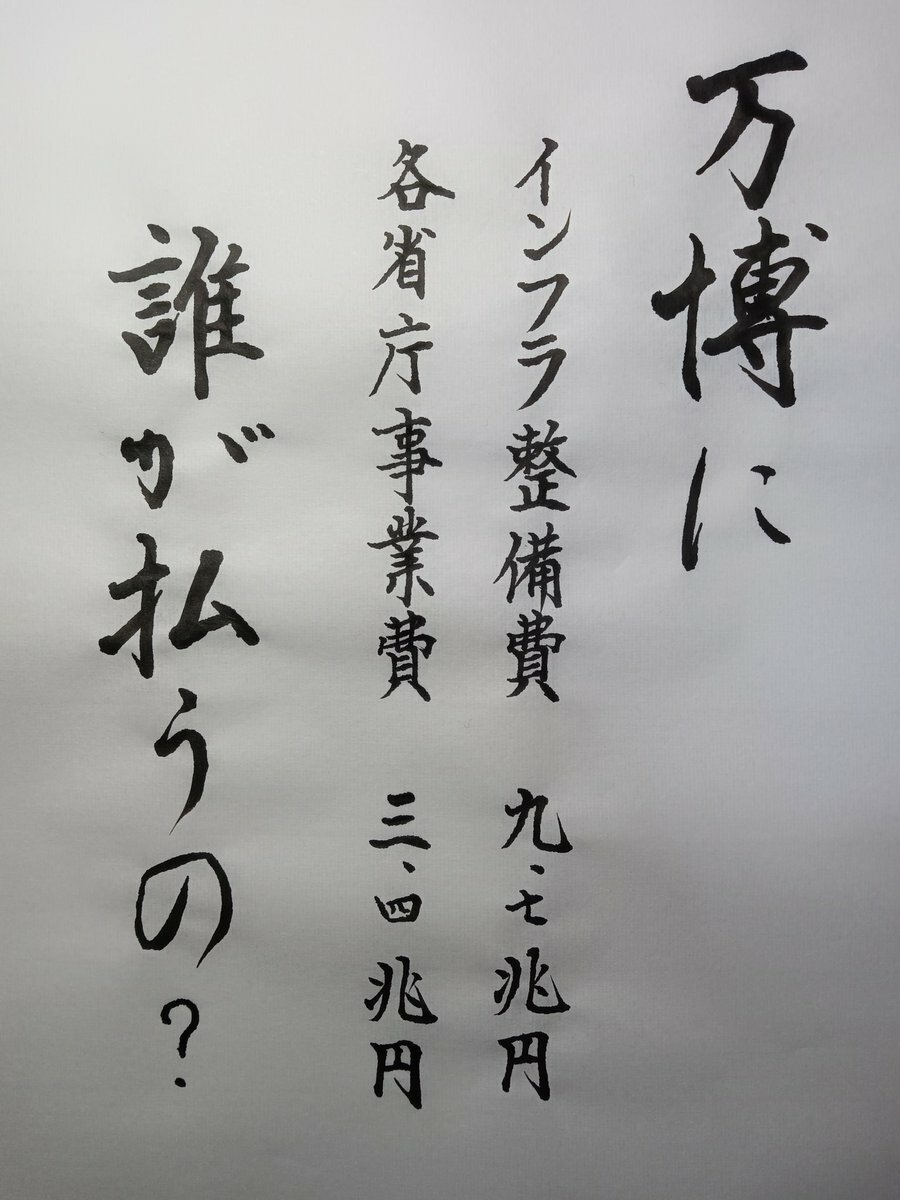 万博に
インフラ整備費 九、七兆円
各省庁事業費 三、四兆円
誰が払うの?